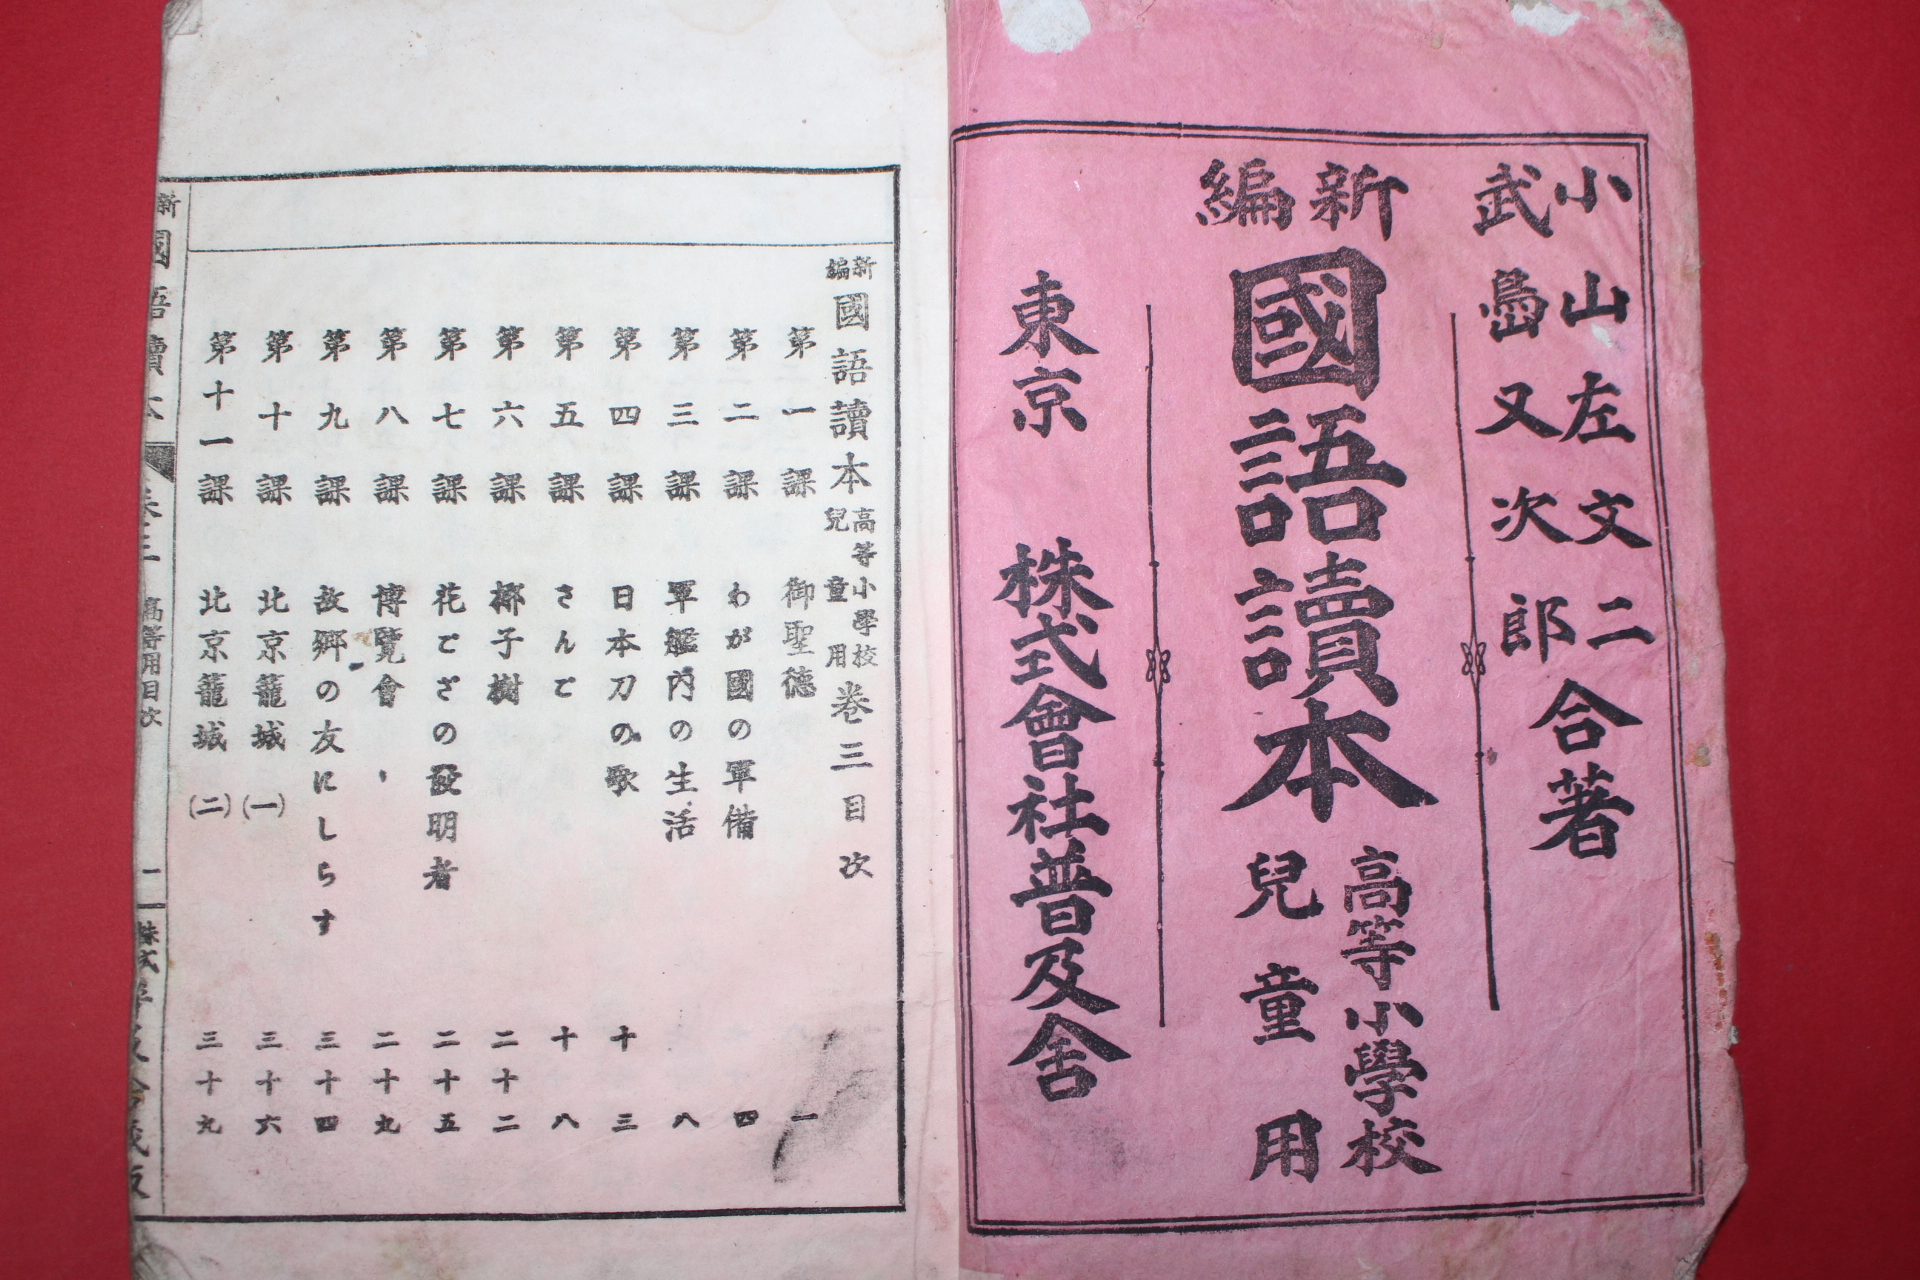 小山左文二
武島又次郎
合著
新編
國語讀本
高等小學校
兒童用
東京
株式會社普及舍
新編
國語讀本
高等小學校
兒童用
卷三目次
第一課 御聖德 一
第二課 わが國の軍備 四
第三課 軍艦內の生活 八
第四課 日本刀の歌 十三
第五課 さんご 十八
第六課 椰子樹 二十二
第七課 花ござの發明者 二十五
第八課 博覽會 二十九
第九課 故鄉の友にしらす 三十四
第十課 北京籠城(一) 三十六
第十一課 北京籠城(二) 三十九
新 國語讀本 卷三 高等用目次 二 株式